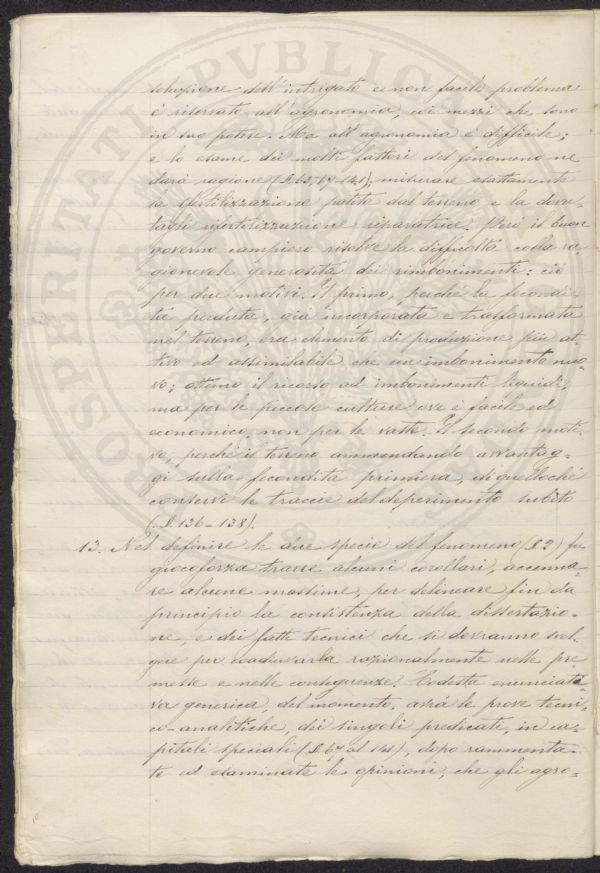 soluzione dell'intrigato e non facile problema
è riservato all'agronomia, coi mezzi che sono
in suo potere. Ma all'agronomia è difficile;
e lo esame dei molti fattori del fenomeno ne
darà ragione (§. 63, 67-141), misurare esattamente
la sfertilizzazione patita dal terreno e la dovu=
tagli rifertilizzazione riparatrice. Però il buon
governo campiero risolve la difficoltà colla ra=
gionevole generosità dei rimbonimenti: ciò
per due motivi. Il primo, perchè la fecondi=
tà perduta, già incorporata e trasformata
nel terreno, era elemento di produzione più at=
tivo ed assimilabile che un imbonimento nuo=
vo; ottimo il ricorso ad imbonimenti liquidi
ma per le piccole culture ove è facile ed
economico, non per le vaste. Il secondo moti=
vo, perchè il terreno ammendando avvantag=
gi sulla fecondità primiera, di quello che
conservi le traccie del deperimento subito
(§. 136-138).
13. Nel definire le due specie del fenomeno (§. 2) fu
giocoforza trarre alcuni corollari, accenna=
re alcune massime, per delineare fin da
principio la consistenza della dissertazio=
ne, e dei fatti tecnici che si dovranno svol=
gere per coadiuvarla razionalmente nelle pre
messe e nelle conseguenze. Codesta enunciati=
va generica, del momento, avrà le prove tecni=
co-analitiche, dei singoli predicati, in ca=
pitoli speciali (§. 67 al 141), dopo rammenta=
te ed esaminate le opinioni, che gli agro=
10
PROSPERITATI PVBLICAE